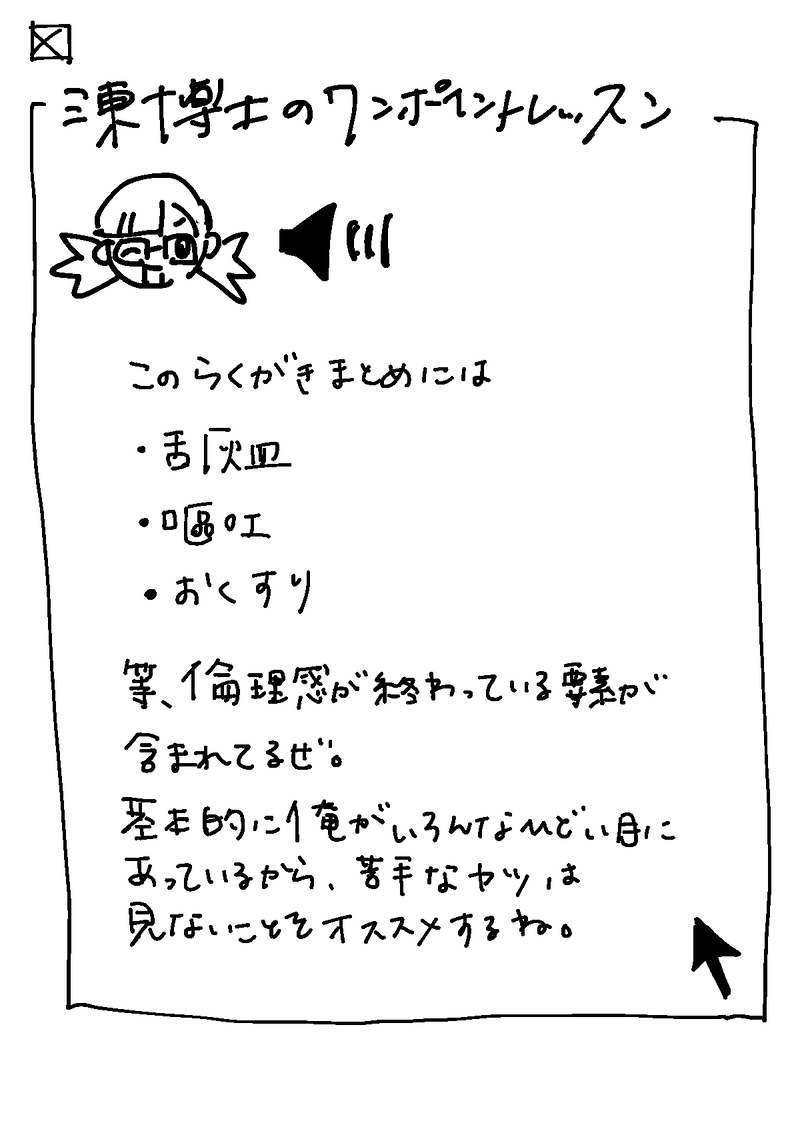 凍博士のワンポイントレッスン
このらくがきまとめには
・舌灰皿
・嘔吐
・おくすり
等、倫理感が終わっている要素が
含まれてるぜ。
基本的に俺がいろんなひどい目に
あっているから、苦手なヤツは
見ないことをオススメするね。